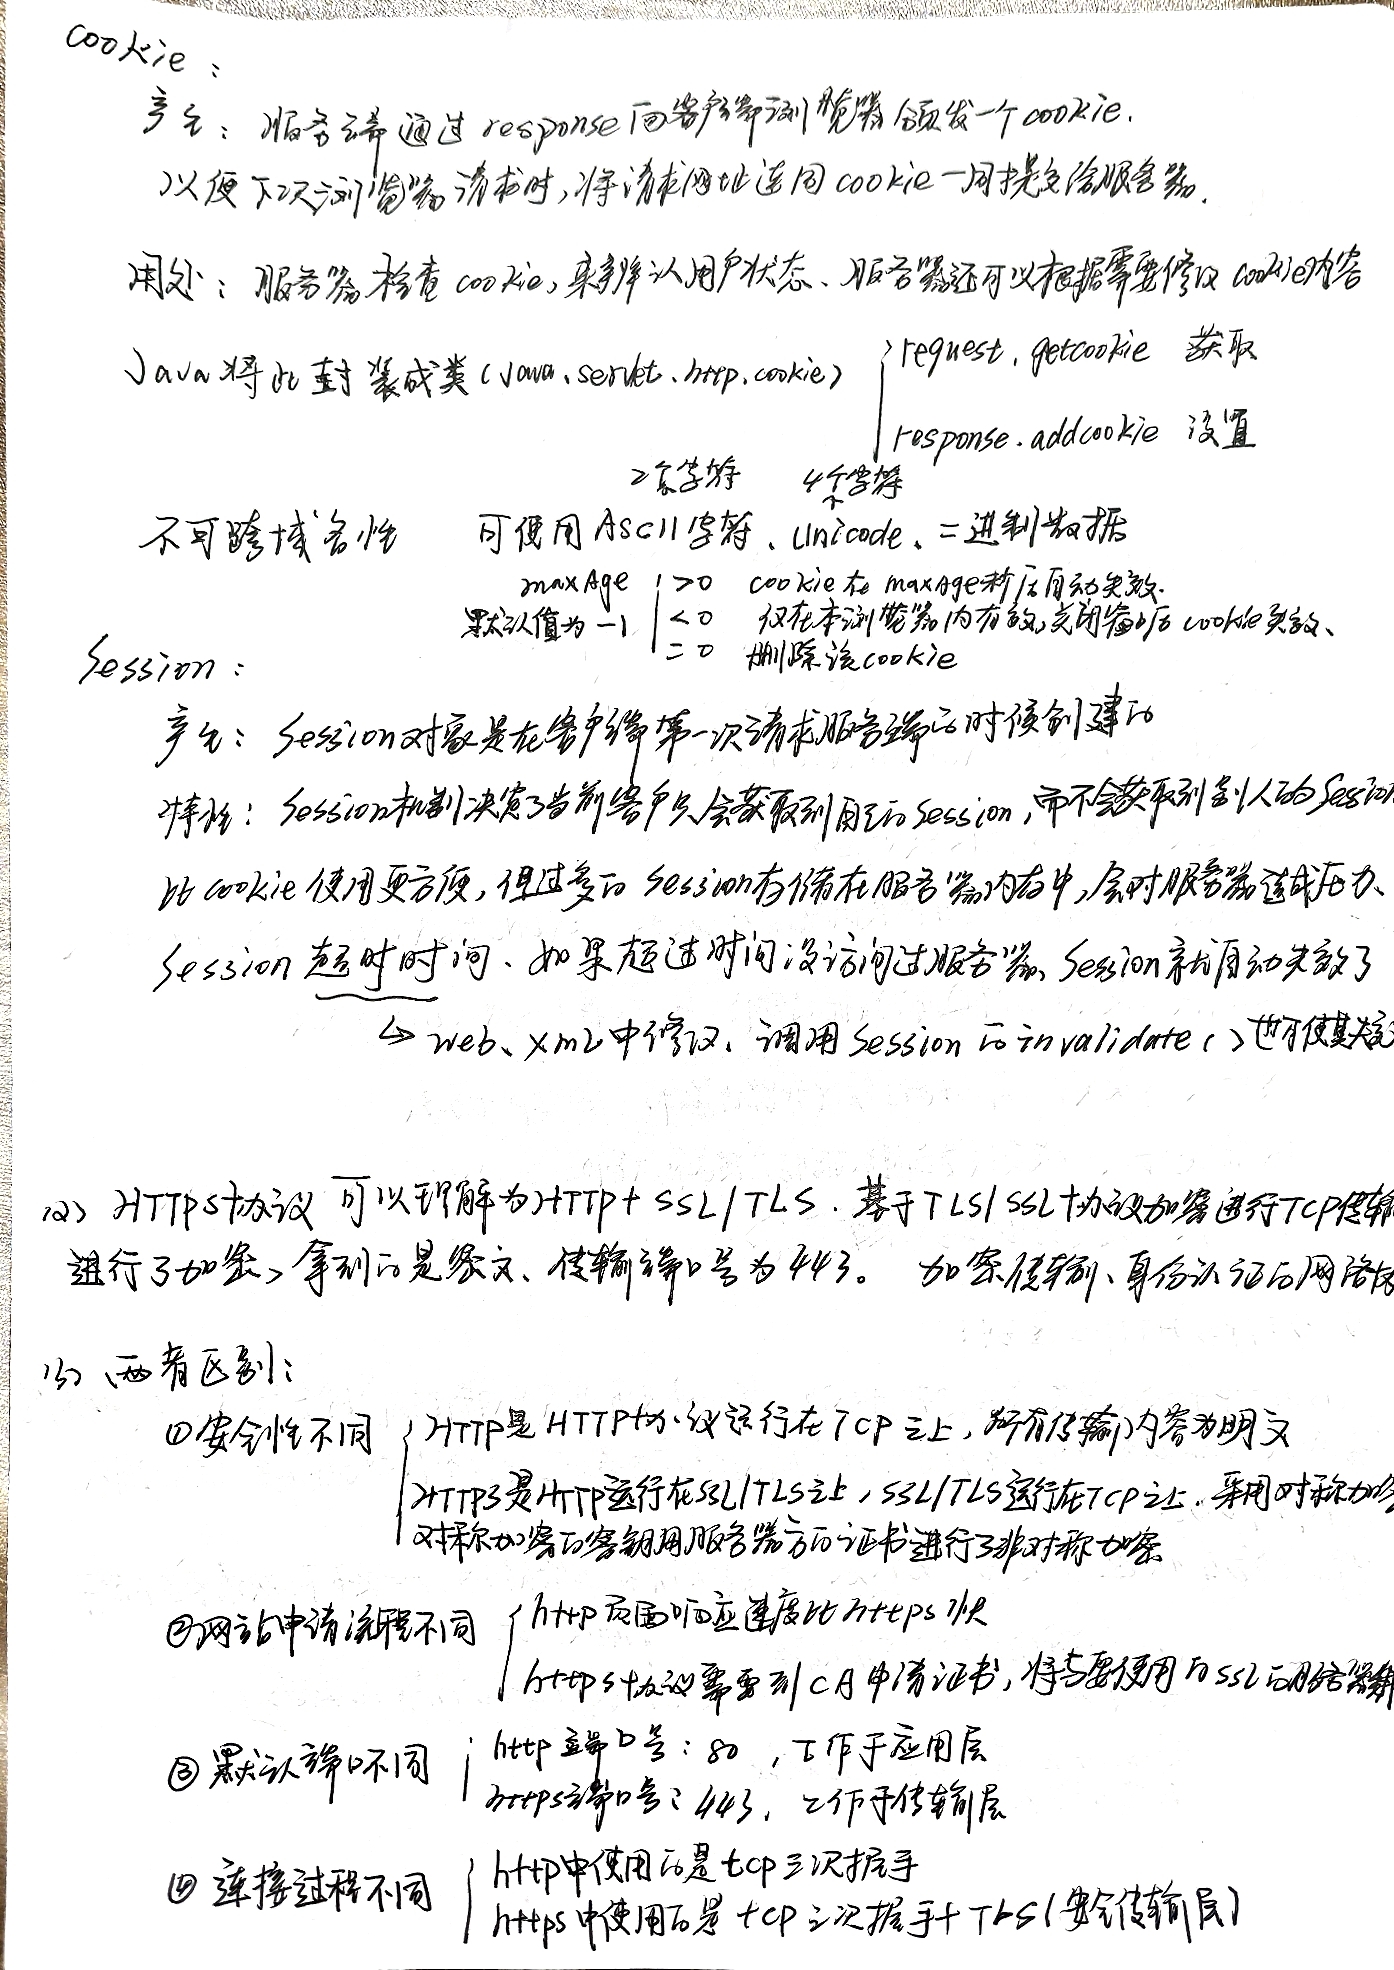 cookie：
产生：服务端通过response向客户端浏览器颁发一个cookie.
以便下次浏览器请求时,将请求网址连同cookie一同提交给服务器.
用处：服务器检查cookie,来辨认用户状态、服务器还可以根据需要修改cookie内容
Java将此封装成类(Java.servlet.http.cookie)
request.getcookie 获取
response.addcookie 设置
2个字符 4个字符
不可跨域名性 可使用ASCII字符、Unicode、二进制数据
maxAge >0 cookie在maxAge秒后自动失效.
默认值为-1 <0 仅在本浏览器内有效,关闭窗口后cookie失效、
=0 删除该cookie
Session：
产生：Session对象是在客户端第一次请求服务端的时候创建的
特性：Session机制决定了当前客户只会获取到自己的Session,而不会获取到别人的Session
比cookie使用更方便,但过多的Session存储在服务器内存中,会对服务器造成压力、
Session超时时间、如果超过时间没访问过服务器、Session就自动失效了
↳ web、xml中修改、调用Session的invalidate()也可使其失效
(2) HTTPS协议 可以理解为HTTP+SSL/TLS.基于TLS/SSL协议加密进行TCP传输
进行了加密,拿到的是密文、传输端口号为443。 加密传输、身份认证的网络
(3)、两者区别：
①安全性不同 HTTP是HTTP协议运行在TCP之上,所有传输内容为明文
HTTPS是HTTP运行在SSL/TLS之上,SSL/TLS运行在TCP之上.采用对称加密
对称加密的密钥用服务器方的证书进行了非对称加密
②网站申请流程不同 http页面响应速度比https快
https协议需要到CA申请证书,将与要使用的SSL的服务器
③默认端口不同 http端口号：80 ,工作于应用层
https端口号：443,工作于传输层
④连接过程不同 http中使用的是tcp三次握手
https中使用的是tcp三次握手+TLS(安全传输层)